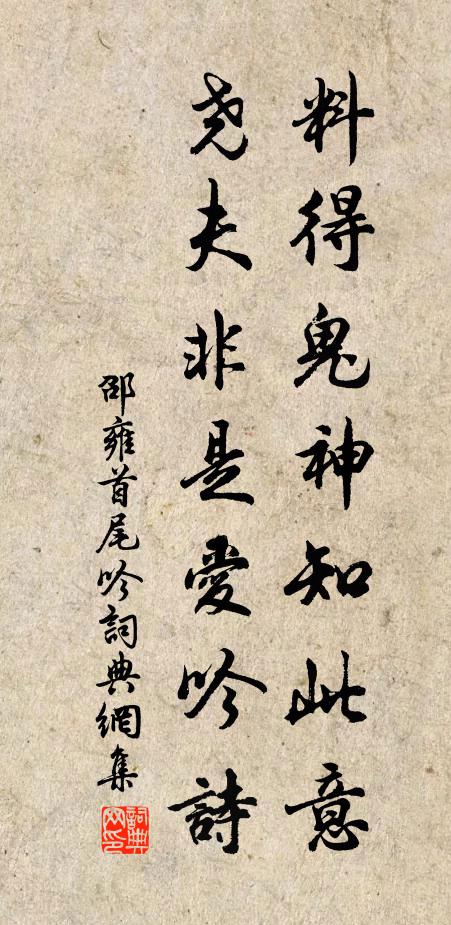 料得鬼神知此意
尭夫非是愛吟詩
邵雍首尾吟詞典網集
詞典网印